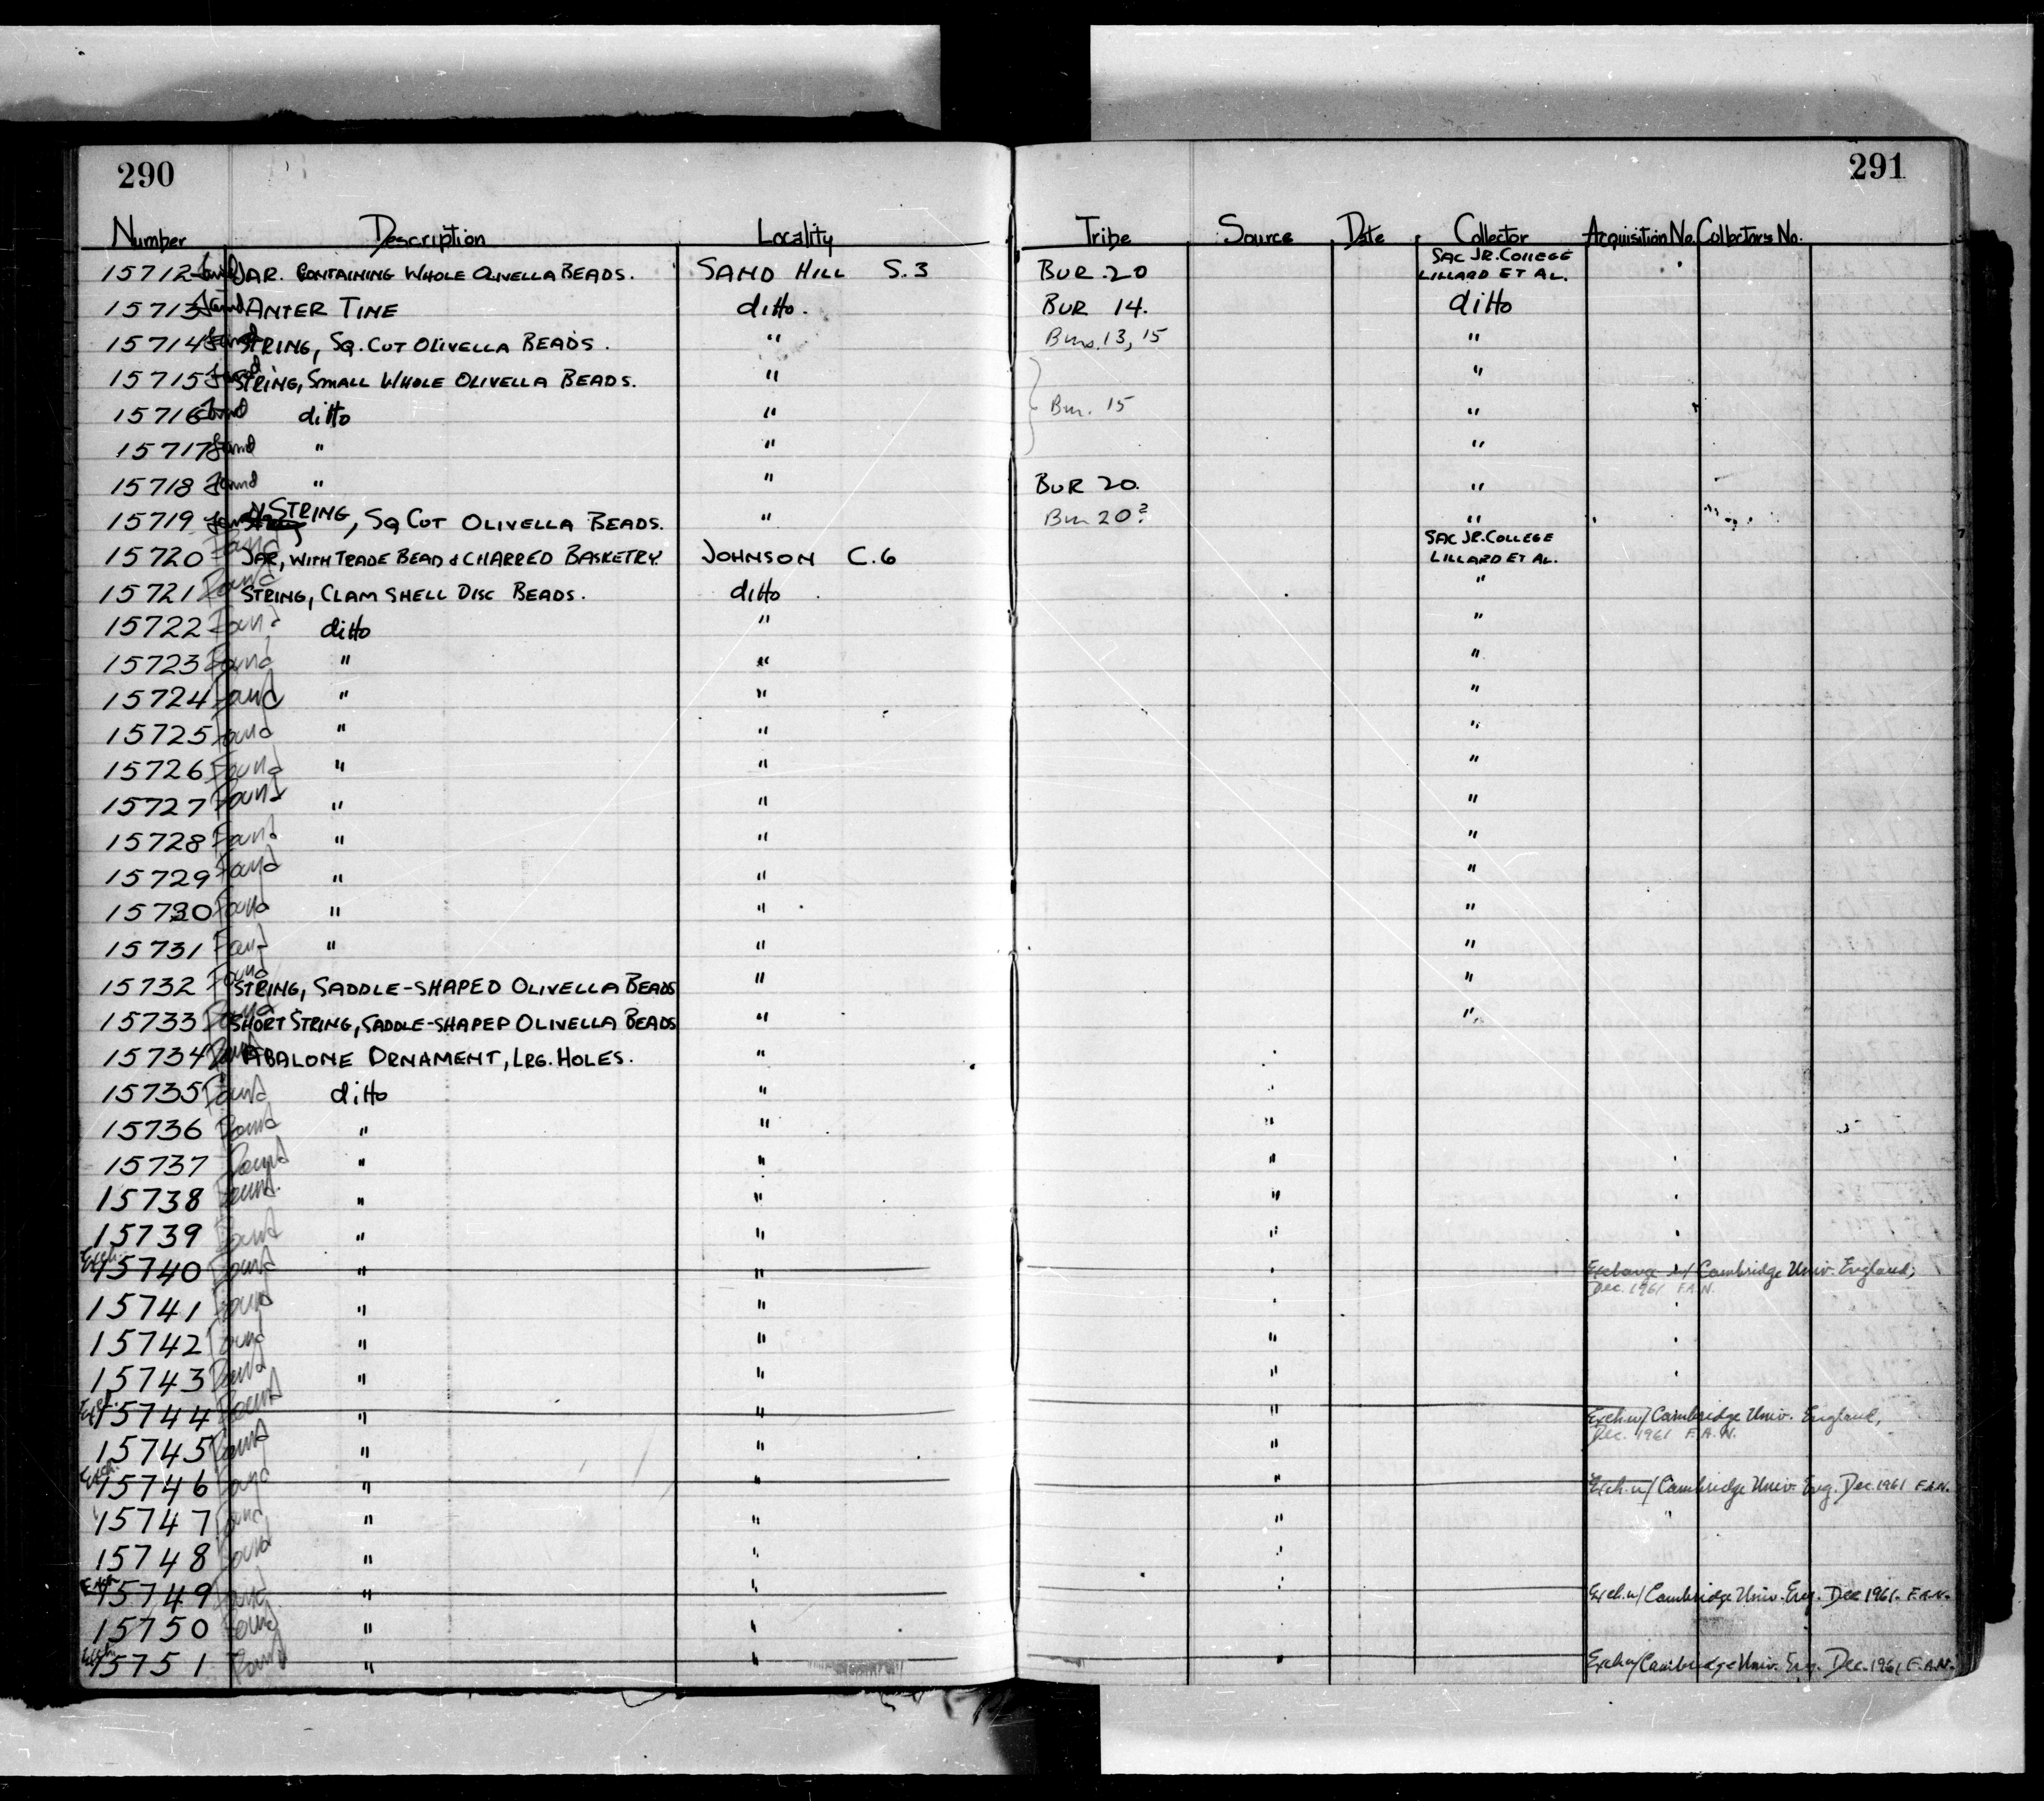 290
291
Number Description Locality Tribe Source Date Collector Acquisition No. Collectors No.
15712 Found JAR. CONTAINING WHOLE OLIVELLA BEADS. SAND HILL S.3 BUR. 20 SAC JR. COLLEGE LILLARD ET AL.
15713 Found ANTER TINE ditto. BUR 14. ditto
15714 Found STRING, SQ. CUT OLIVELLA BEADS. " Burs. 13, 15 "
15715 Found STRING, SMALL WHOLE OLIVELLA BEADS. " "
15716 Found ditto " Bur. 15 "
15717 Found " " "
15718 Found " " BUR 20. "
15719 Found STRING, SQ CUT OLIVELLA BEADS. " Bur 20? "
15720 Found JAR, WITH TRADE BEAD & CHARRED BASKETRY. JOHNSON C.6 SAC JR. COLLEGE LILLARD ET AL.
15721 Found STRING, CLAM SHELL DISC BEADS. ditto "
15722 Found ditto " "
15723 Found " " "
15724 Found " " "
15725 Found " " "
15726 Found " " "
15727 Found " " "
15728 Found " " "
15729 Found " " "
15730 Found " " "
15731 Found " " "
15732 Found STRING, SADDLE-SHAPED OLIVELLA BEADS " "
15733 Found SHORT STRING, SADDLE-SHAPED OLIVELLA BEADS " "
15734 Found ABALONE ORNAMENT, LRG. HOLES. "
15735 Found ditto "
15736 Found " " "
15737 Found " " "
15738 Found " " "
15739 Found " " "
Exch. 15740 Found " " Exchange w/ Cambridge Univ. England, Dec. 1961 F.A.N.
15741 Found " "
15742 Found " " "
15743 Found " " "
Exch. 15744 Found " " " Exch. w/ Cambridge Univ. England, Dec. 1961 F.A.N.
15745 Found " " "
Exch. 15746 Found " " " Exch. w/ Cambridge Univ. Eng. Dec. 1961 F.A.N.
15747 Found " " " "
15748 Found " " "
Exch 15749 Found " " " Exch. w/ Cambridge Univ. Eng. Dec 1961. F.A.N.
15750 Found " "
Exch. 15751 Found " " " Exch w/ Cambridge Univ. Eng. Dec. 1961 F.A.N.